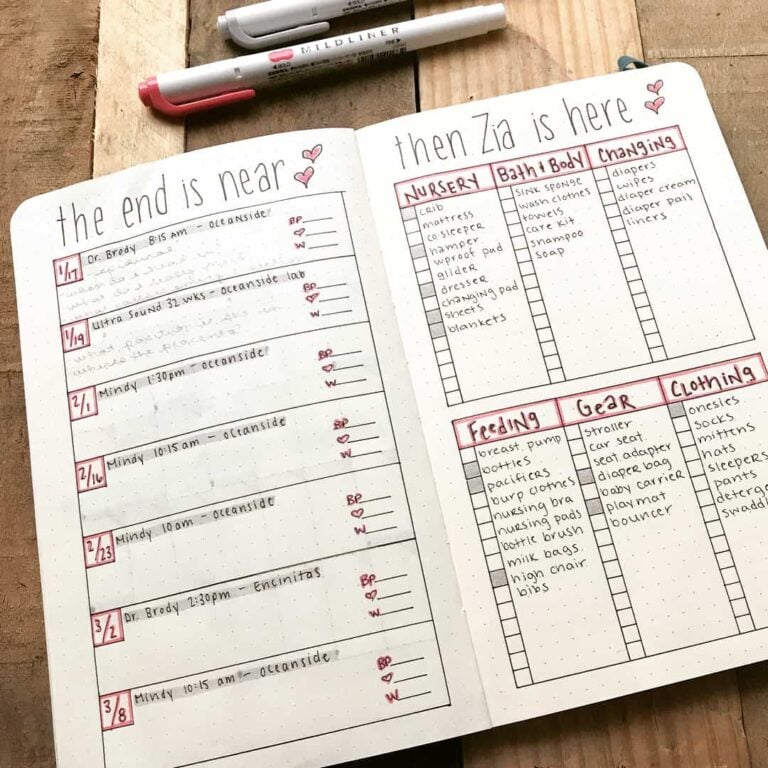 MILDLINER
the end is near
1/17 Dr. Brody 8:15 am - oceanside
BP
W
1/19 Ultra Sound 32 wks - oceanside lab
BP
W
2/1 Mindy 1:30pm - oceanside
BP
W
2/16 Mindy 10:15 am - oceanside
BP
W
2/23 Mindy 10am - oceanside
BP
W
3/2 Dr. Brody 2:30pm - Encinitas
BP
W
3/8 Mindy 10:15 am - oceanside
BP
W
then Zia is here
NURSERY
crib
mattress
co sleeper
hamper
wproof pad
glider
dresser
changing pad
sheets
blankets
Bath & Body
sink sponge
wash clothes
towels
care kit
shampoo
soap
Changing
diapers
wipes
diaper cream
diaper pail
liners
Feeding
breast pump
bottles
pacifiers
burp clothes
nursing bra
nursing pads
bottle brush
milk bags
high chair
bibs
Gear
stroller
car seat
seat adapter
diaper bag
baby carrier
playmat
bouncer
Clothing
onesies
socks
mittens
hats
sleepers
pants
deterge
swaddl